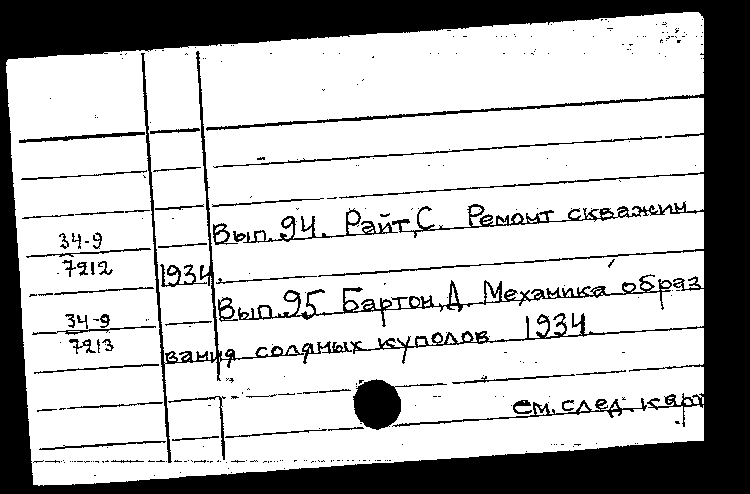 34-9
7212
Вып. 94. Райт, С. Ремонт скважин.
1934.
34-9
7213
Вып. 95 Бартон, Д. Механика образ
вания соляных куполов 1934.
см. след. карт